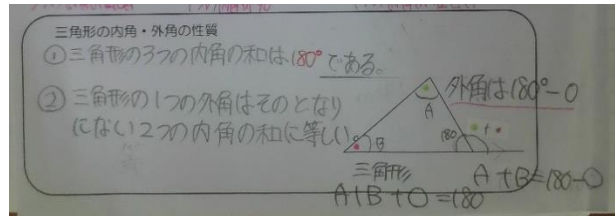 三角形の内角・外角の性質
①三角形の3つの内角の和は180°である。
②三角形の1つの外角はそのとなり
にない2つの内角の和に等しい
外角は180°-0
A
B
180
三角形
A+B+0=180
A+B=180-0